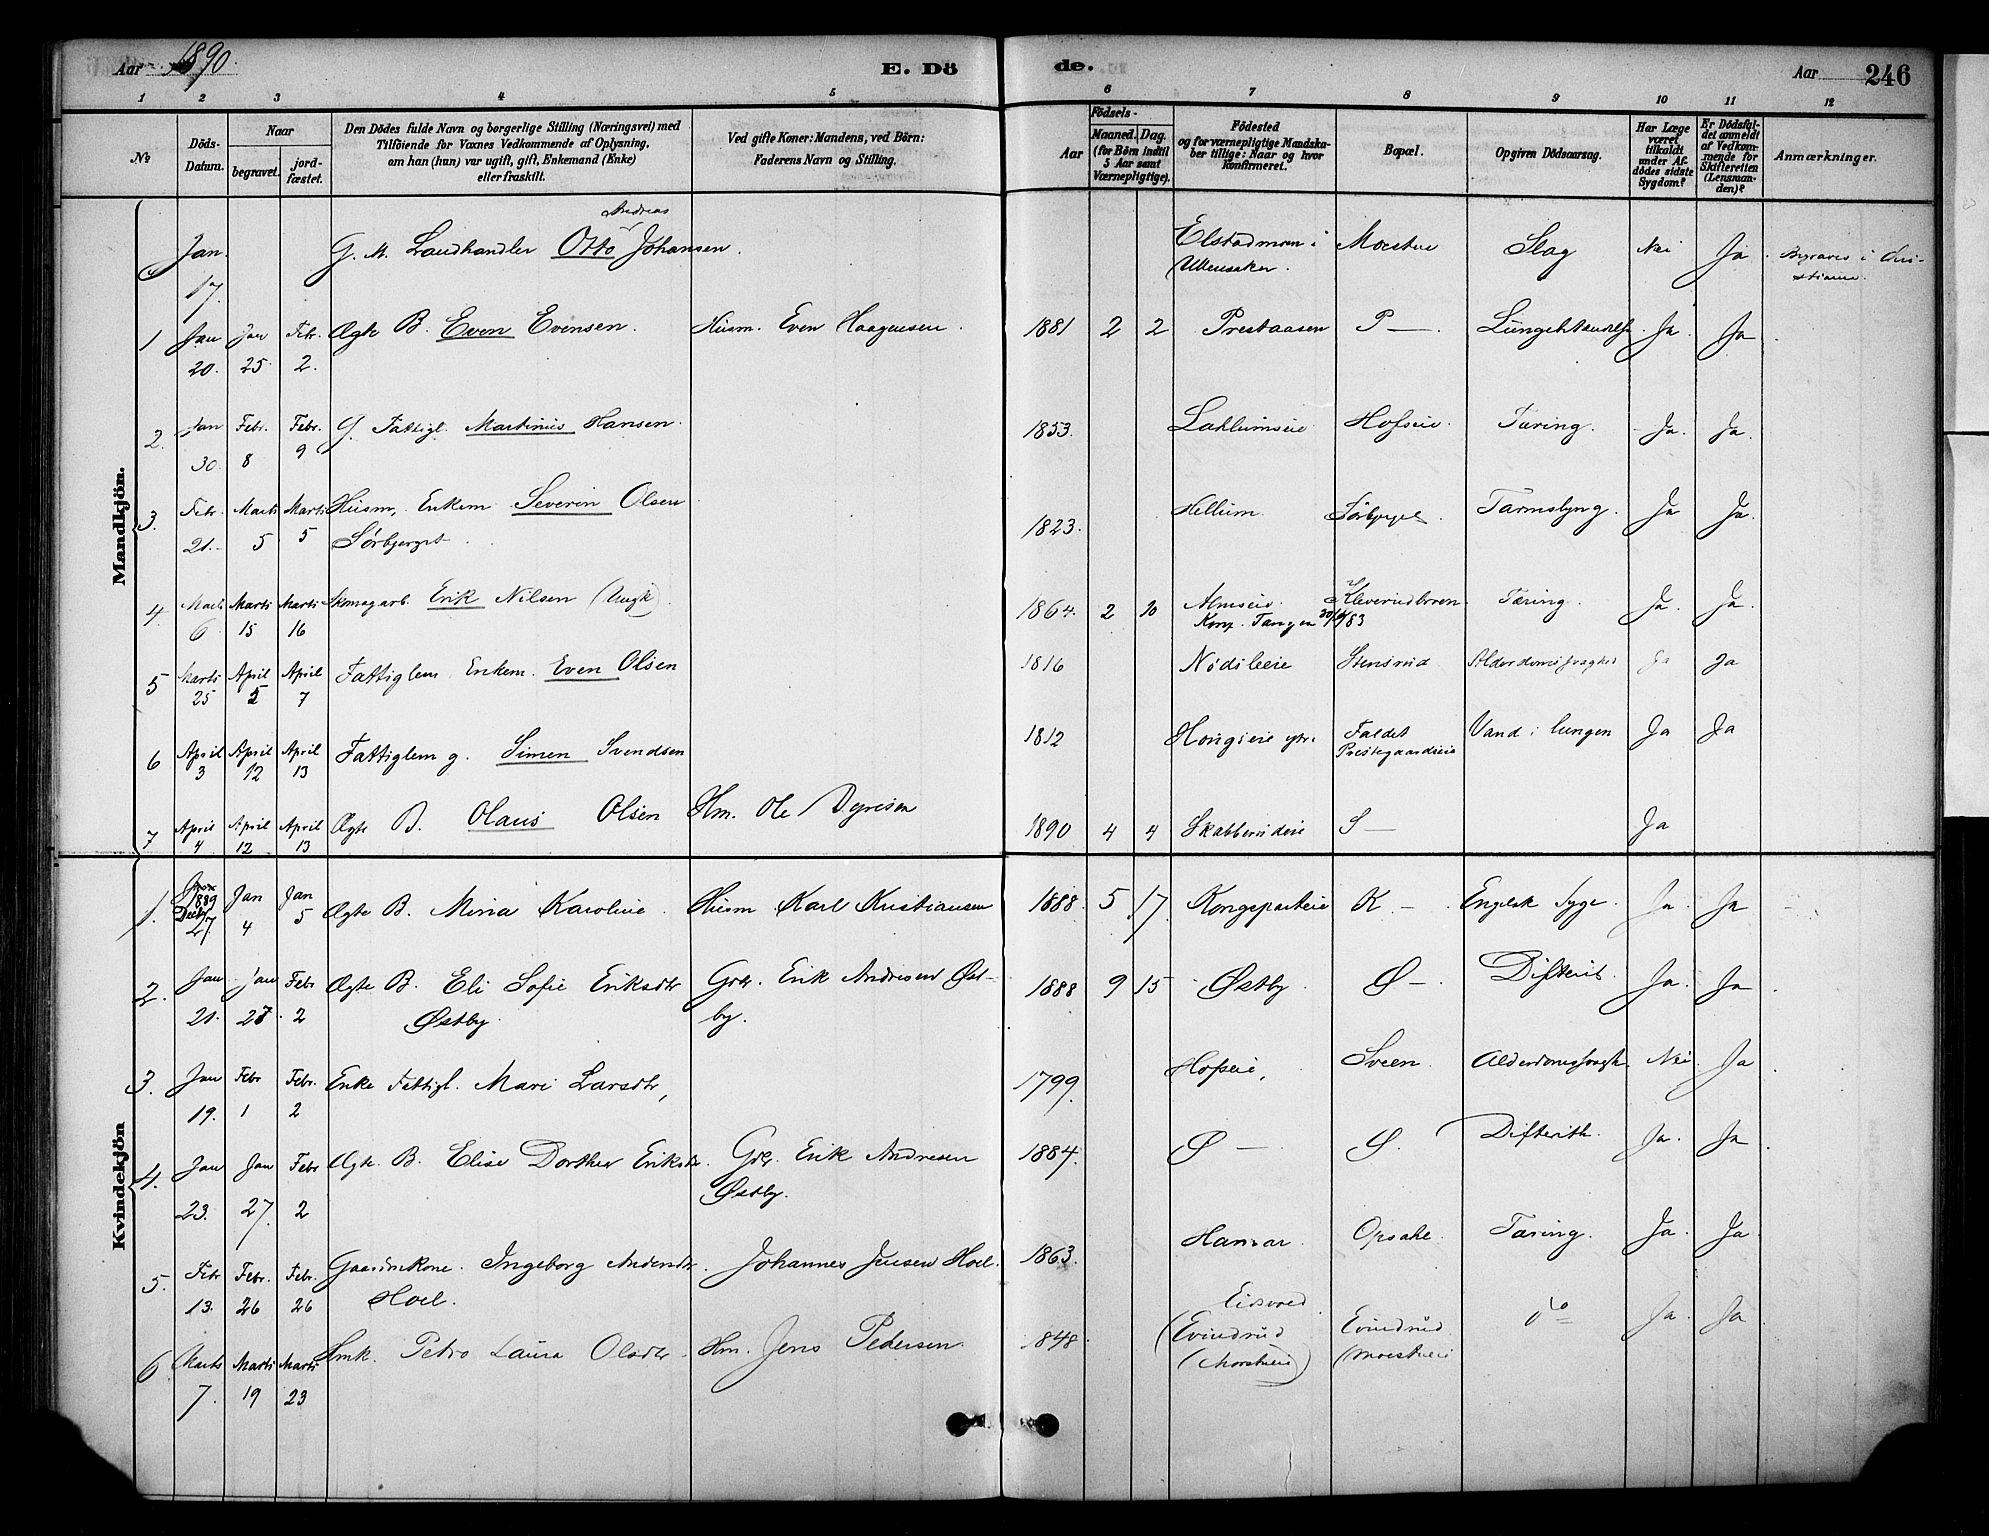 Aar 1890. E. Dö de. Aar 246
1 2 3 4 5 6 7 8 9 10 11 12
No
Döds-Datum.
Naar
begravet.
jord-fæstet.
Den Dödes fulde Navn og borgerlige Stilling (Næringsvei) med
Tilföiende for Voxnes Vedkommende af Oplysning,
om han (hun) var ugift, gift, Enkemand (Enke)
eller fraskilt.
Ved gifte Koner: Mandens, ved Börn:
Faderens Navn og Stilling.
Födsels-
Aar
Maaned. Dag.
(for Börn indtil
5 Aar samt
Værnepligtige).
Födested
og for værnepligtige Mandska-
ber tillige: Naar og hvor
Konfirmeret.
Bopæl.
Opgiven Dödsaarsag.
Har Læge
været
tilkaldt
under Af-
dödes sidste
Sygdom?
Er Dödsfal-
det anmeldt
af Vedkom-
mende for
Skifteretten
(Lensman-
den)?
Anmærkninger.
Mandkjön.
Andreas
Jan. 17. G. M. Landhandler Otto Johansen. Elstadmoen i Ullensaker. Moestue Slag Nei Ja Begraves i Christiania.
1 Jan 20. Jan 25 Febr. 2. Ægte B. Even Evensen. Husm. Even Haagensen. 1881 2 2 Prestaasen P— Lungebetændelse Ja. Ja
2. Jan 30. Febr. 8 Febr. 9 G. Fattigl. Martinius Hansen. 1853. Hofseie Tæring. Ja. Ja.
3. Febr. 21. Marts 5 Marts 5 Husm, Enkem Severin Olsen
Sörbjerget. 1823. Hellum Tarmslyng. Ja Ja.
4. Marts 6. Marts 15 Marts 16 Skomagarb. Erik Nilsen (Ungk). 1864. 2 10 Almseie.
Konf. Tangen Kleverudbroen. Tæring. Ja. Ja.
5 Marts 25 April 5 April 7 Fattiglem Enkem. Even Olsen 1816 Stensrud Alderdomssvaghed Ja Ja
6 April 3 April 12 April 13 Fattiglem g. Simen Svendsen 1812 Faldet
Prestegaardseie Vand i lungen Ja Ja
7 April 4 April 12 April 13 Ægte B. Olaus Olsen Hm. Ole Dyresen 1890 4 4 Skabberudeie S— Ja
Kvindekjön
1. 1889 Decbr 27 Jan 4 Jan 5 Ægte B. Mina Karoline. Husm Karl Kristiansen 1888. 5 17. Kongsparteie K.— Engelsk Syge. Ja. Ja
2. Jan 21. Jan 27. Febr 2 Ægte B. Eli Sofie Eriksdtr
Østby. Grbr. Erik Andresen Øst-
by. 1888 9 15 Østby. Ø—. Difterit. Ja. Ja
3. Jan 19. Febr 1 Febr. 2 Enke Fattigl. Mari Larsdtr, 1799. Hofseie, Sveen. Alderdomssvagh. Nei. Ja
4. Jan 23. Jan 27. Febr 2 Ægte B. Elise Dorthea Eriksdtr. Grbr. Erik Andresen
Østby. 1884. Ø— Ø. Difterith. Ja. Ja
5. Febr 13. Febr. 26 Febr. 26 Gaardmkone. Ingeborg Andersdtr.
Hoel. Johannes Jensen Hoel. 1863. Hamar Opsahl. Tæring. Ja. Ja.
6 Marts 7. Marts 19 Marts 23 Hmk. Petro Laura Olsdtr Hm. Jens Pedersen. 1848. Eidsvold.
(Evindrud
(Morstueie) Evindrud
(Moestueie do Ja. Ja